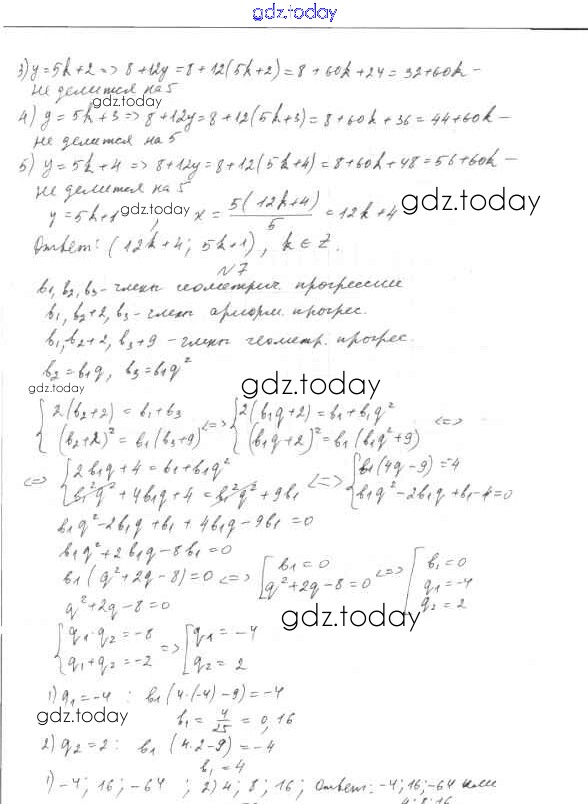 gdz.today
3) y = 5k+2 => 8+12y = 8+12(5k+2) = 8+60k+24 = 32+60k –
не делится на 5
gdz.today
4) y = 5k+3 => 8+12y = 8+12(5k+3) = 8+60k+36 = 44+60k –
не делится на 5
5) y = 5k+4 => 8+12y = 8+12(5k+4) = 8+60k+48 = 56+60k –
не делится на 5
y = 5k+1, x = 5(12k+4)/5 = 12k+4
gdz.today
gdz.today
Ответ: (12k+4; 5k+1), k ∈ Z.
N7
b1, b2, b3 – члены геометрич. прогрессии
b1, b2+2, b3 – члены арифм. прогрес.
b1, b2+2, b3+9 – члены геометр. прогрес.
b2 = b1q, b3 = b1q²
gdz.today
gdz.today
{ 2(b2+2) = b1+b3 <=> { 2(b1q+2) = b1+b1q² <=>
(b2+2)² = b1(b3+9) (b1q+2)² = b1(b1q²+9)
<=> { 2b1q+4 = b1+b1q² <=> { b1(4q-9) = -4
b1²q²+4b1q+4 = b1²q²+9b1 b1q²-2b1q+b1-4=0
b1q²-2b1q+b1+4b1q-9b1 = 0
b1q²+2b1q-8b1 = 0
b1(q²+2q-8) = 0 <=> [ b1 = 0 <=> [ b1 = 0
q²+2q-8 = 0 q1 = -4
q2 = 2
q²+2q-8 = 0
gdz.today
{ q1·q2 = -8 => [ q1 = -4
q1+q2 = -2 q2 = 2
1) q1 = -4 : b1(4·(-4)-9) = -4
gdz.today
b1 = 4/25 = 0,16
2) q2 = 2 : b1(4·2-9) = -4
b1 = 4
1) -4; 16; -64 ; 2) 4; 8; 16; Ответ: -4; 16; -64 или
4; 8; 16